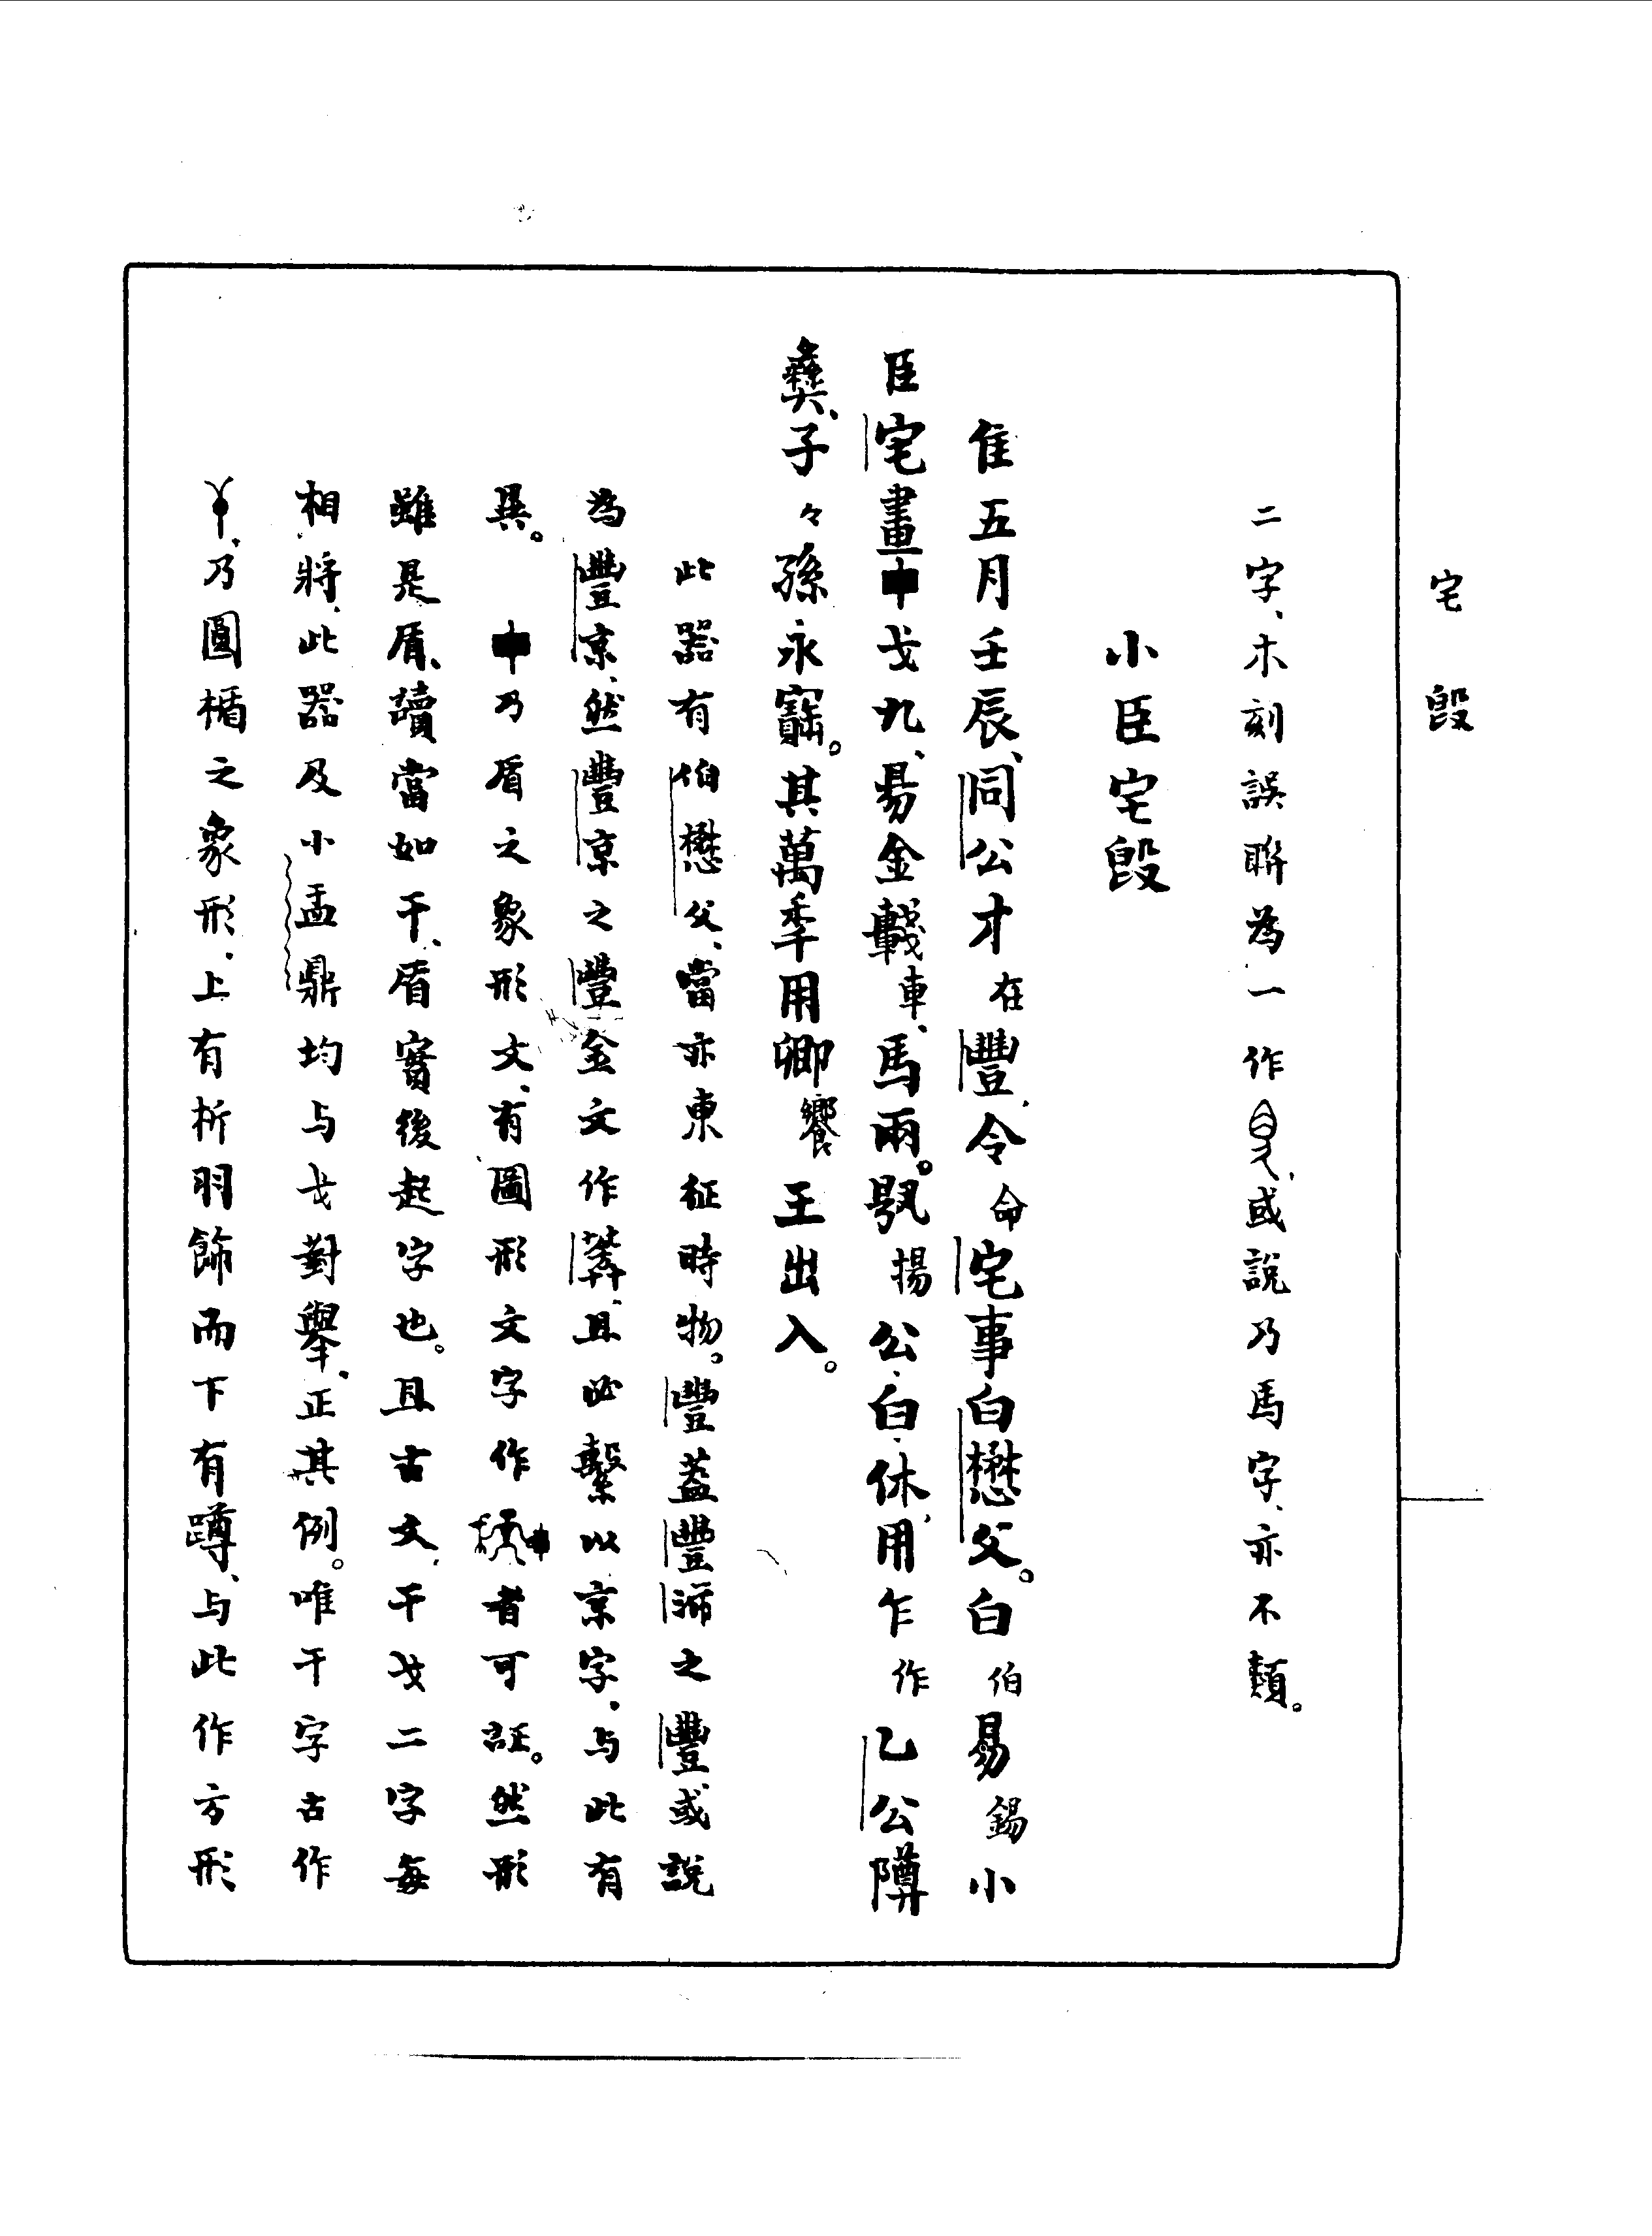 宅𣪘
二字、木刻誤聯為一作、或說乃馬字、亦不類。
小臣宅𣪘
隹五月壬辰、同公才在豐、令命宅事白懋父。白伯易錫小
臣宅畫戈九、易金車、馬兩。揚公、白休、用乍作乙公隩
彝、子々孫永寶。其萬年用卿饗王出入。
此器有伯懋父、當亦東征時物。豐蓋豐沛之豐、或說
為豐京、然豐京之豐金文作𦵯、且必繫以京字、与此有
異。 乃盾之象形文、有圖形文字作者可証。然形
雖是盾、讀當如干、盾實後起字也。且古文、干戈二字每
相將、此器及小盂鼎均与戈對舉、正其例。唯干字古作
、乃圓楯之象形、上有析羽飾而下有蹲、与此作方形